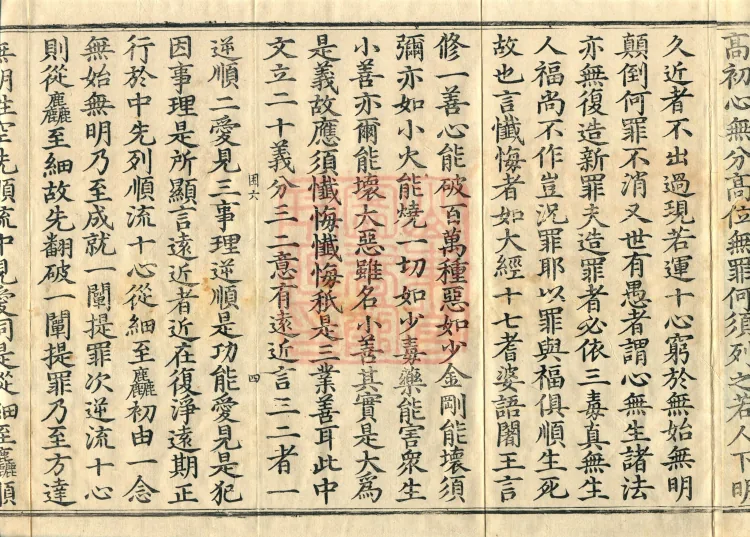 高初心無分高位無罪何須列之若人下明
久近者不出過現若運十心窮於無始無明
顛倒何罪不消又世有愚者謂心無生諸法
亦無復造新罪夫造罪者必依三毒真無生
人福尚不作豈況罪耶以罪與福俱順生死
故也言懺悔者如大經十七耆婆語闍王言
修一善心能破百萬種惡如少金剛能壞須
彌亦如小火能燒一切如少毒藥能害眾生
小善亦爾能壞大惡雖名小善其實是大為
是義故應須懺悔懺悔秖是三業善耳此中
文立二十義分三二意有遠近言三二者一
困六 四
逆順二愛見三事理逆順是功能愛見是犯
因事理是所顯言遠近者近在復淨遠期正
行於中先列順流十心從細至麤初由一念
無始無明乃至成就一闡提罪次逆流十心
則從麤至細故先翻破一闡提罪乃至方達
無明性空先順流中見愛同是從細至麤順